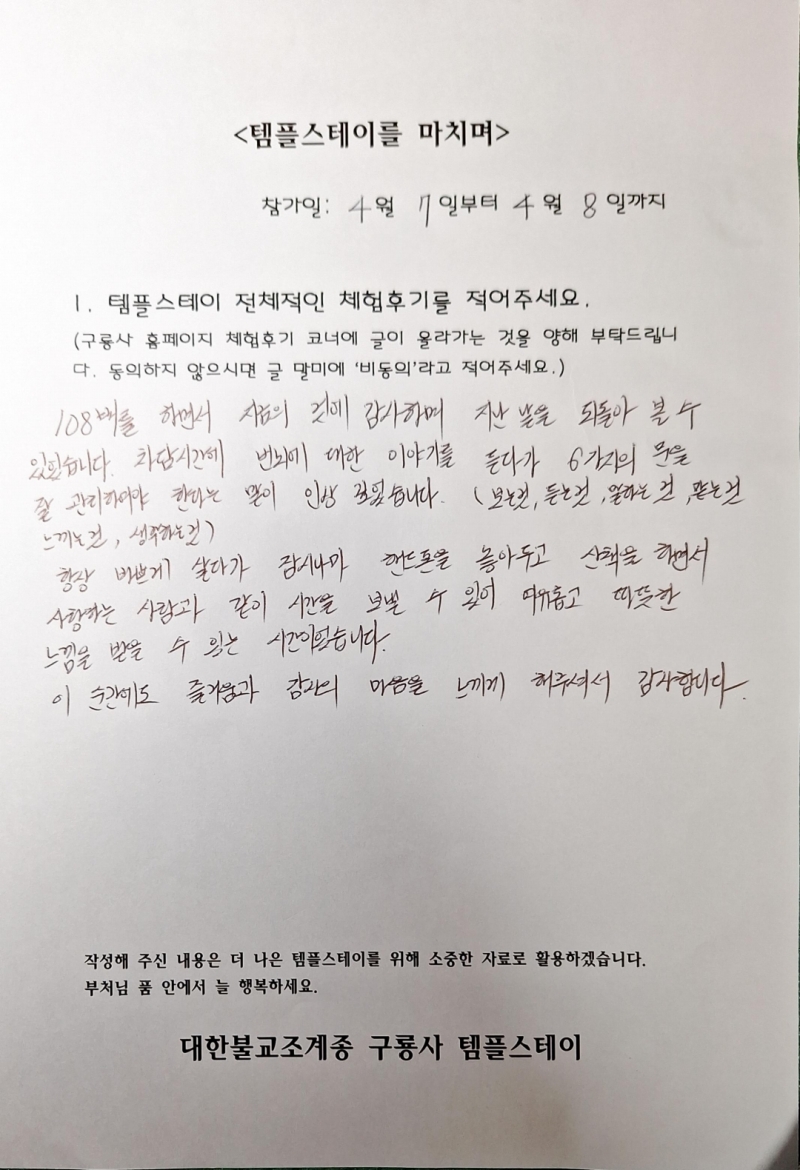 <템플스테이를 마치며>
참가일: 4월 7일부터 4월 8일까지
1. 템플스테이 전체적인 체험후기를 적어주세요.
(구룡사 홈페이지 체험후기 코너에 글이 올라가는 것을 양해 부탁드립니
다. 동의하지 않으시면 글 말미에 '비동의'라고 적어주세요.)
108배를 하면서 지금의 것에 감사하며 지난 날을 되돌아 볼 수
있었습니다. 차담시간에 번뇌에 대한 이야기를 듣다가 6가지의 문을
잘 관리하여야 한다는 말이 인상 깊었습니다. (보는것, 듣는것, 말하는것, 맡는것
느끼는것, 생각하는것)
항상 바쁘게 살다가 잠시나마 핸드폰을 놓아두고 산책을 하면서
사랑하는 사람과 같이 시간을 보낼 수 있어 여유롭고 따뜻한
느낌을 받을 수 있는 시간이었습니다.
이 순간에도 즐거움과 감사의 마음을 느끼게 해주셔서 감사합니다.
작성해 주신 내용은 더 나은 템플스테이를 위해 소중한 자료로 활용하겠습니다.
부처님 품 안에서 늘 행복하세요.
대한불교조계종 구룡사 템플스테이